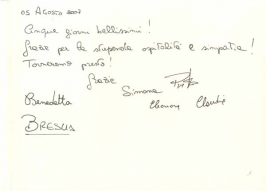 05 Agosto 2007
Cinque giorni bellissimi!
Grazie per la stupenda ospitalità e simpatia!
Torneremo presto!
Grazie
Simone
Benedetta Eleonora Claudia
BRESCIA